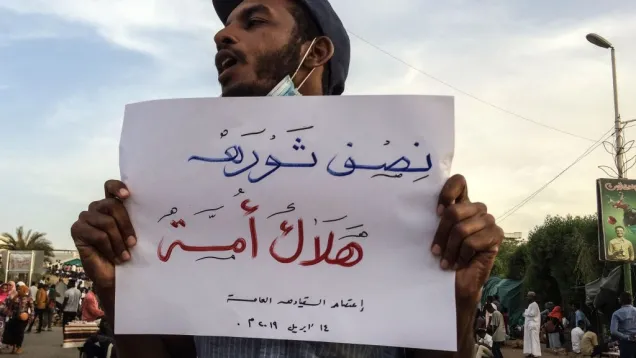 نِصْف ثَورَه
هَلَاكُ أُمَّةُ
إعتصام القيادة العامة
١٤ /ابريل ٢٠١٩ م.